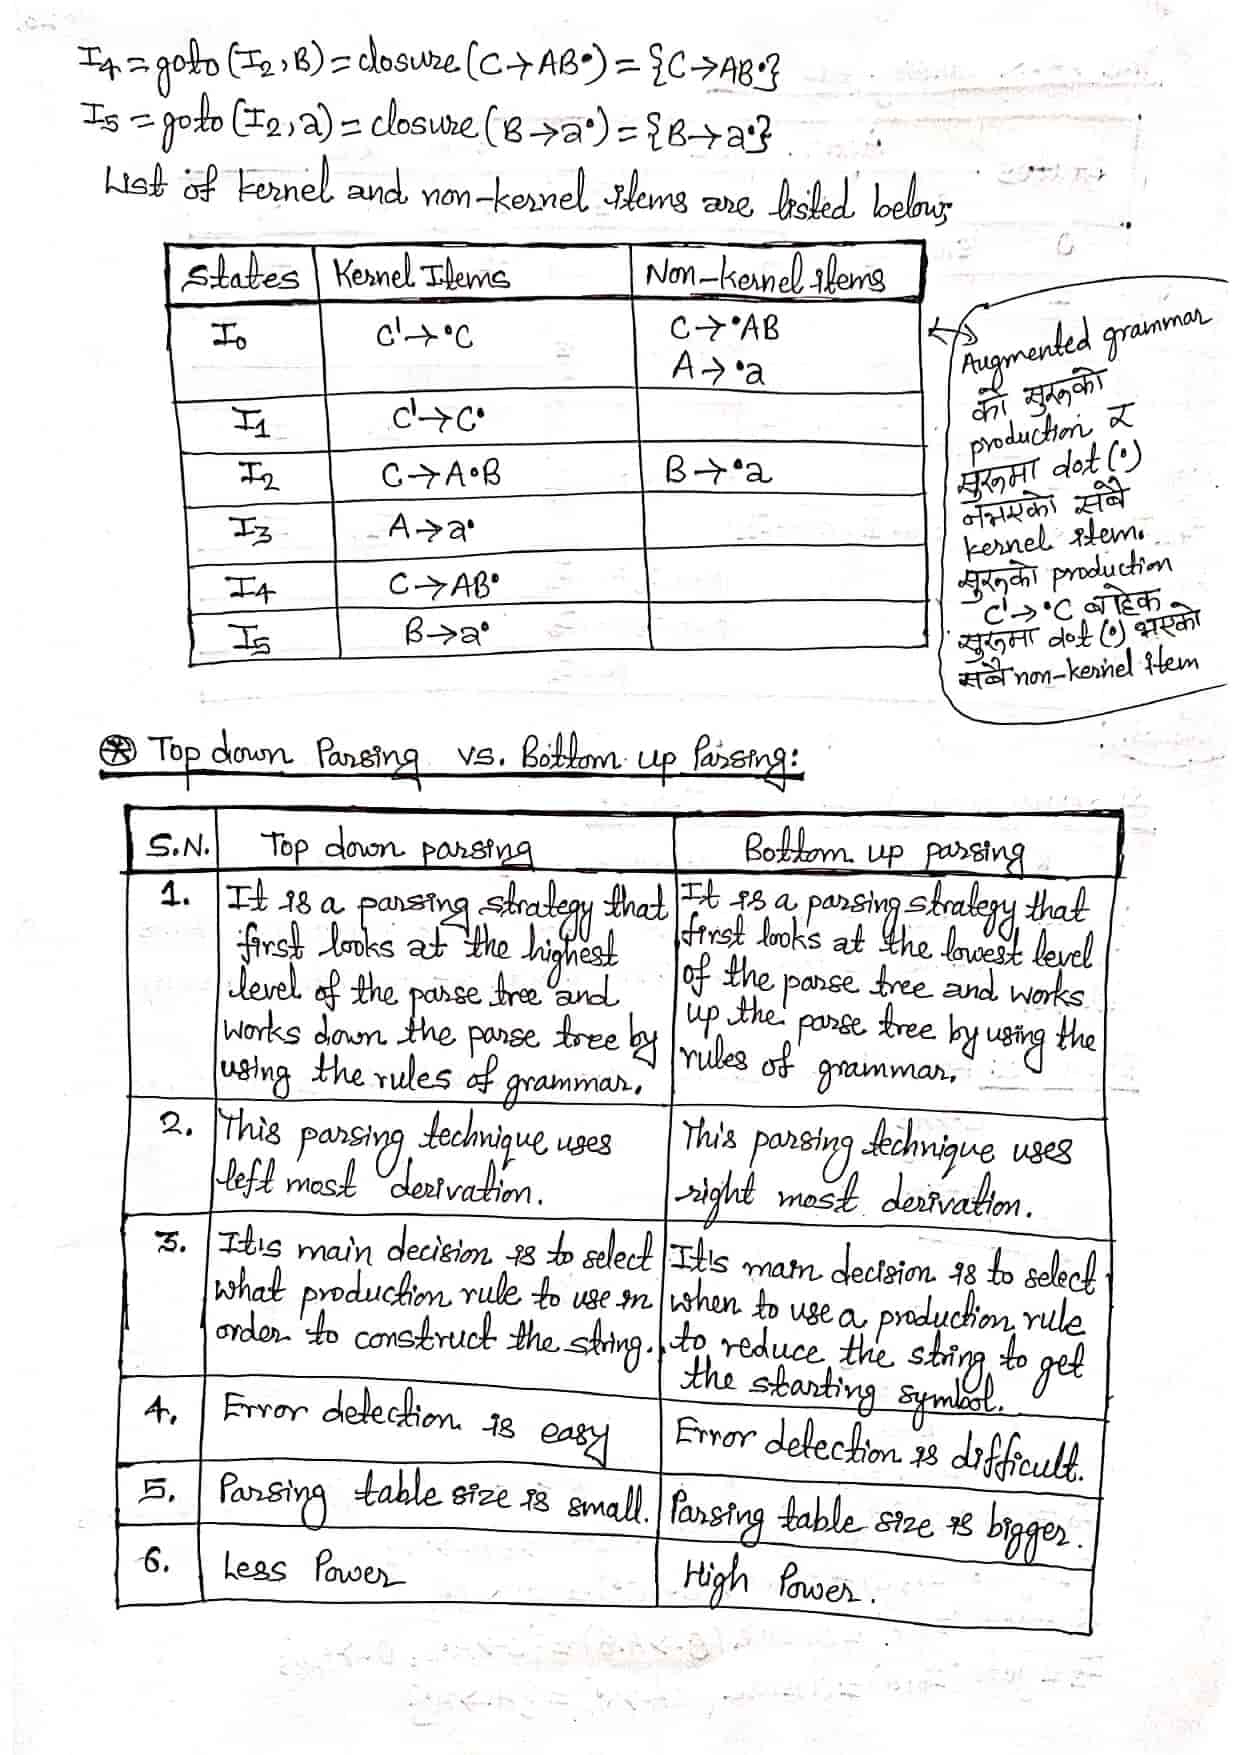 I₄ = goto (I₂, B) = closure (C → AB•) = {C → AB•}
I₅ = goto (I₂, a) = closure (B → a•) = {B → a•}
List of kernel and non-kernel items are listed below;
States | Kernel Items | Non-kernel items
I₀ | C' → •C | C → •AB
A → •a
I₁ | C' → C•
I₂ | C → A•B | B → •a
I₃ | A → a•
I₄ | C → AB•
I₅ | B → a•
Augmented grammar
को सुरुको
production र
सुरुमा dot (•)
नभएको सबै
kernel item.
सुरुको production
C' → •C बाहेक
सुरुमा dot (•) भएको
सबै non-kernel item
Top down Parsing vs. Bottom up Parsing:
S.N. | Top down parsing | Bottom up parsing
1. | It is a parsing strategy that | It is a parsing strategy that
first looks at the highest | first looks at the lowest level
level of the parse tree and | of the parse tree and works
works down the parse tree by | up the parse tree by using the
using the rules of grammar. | rules of grammar.
2. | This parsing technique uses | This parsing technique uses
left most derivation. | right most derivation.
3. | It's main decision is to select | It's main decision is to select
what production rule to use in | when to use a production rule
order to construct the string. | to reduce the string to get
the starting symbol.
4. | Error detection is easy | Error detection is difficult.
5. | Parsing table size is small. | Parsing table size is bigger.
6. | Less Power | High Power.